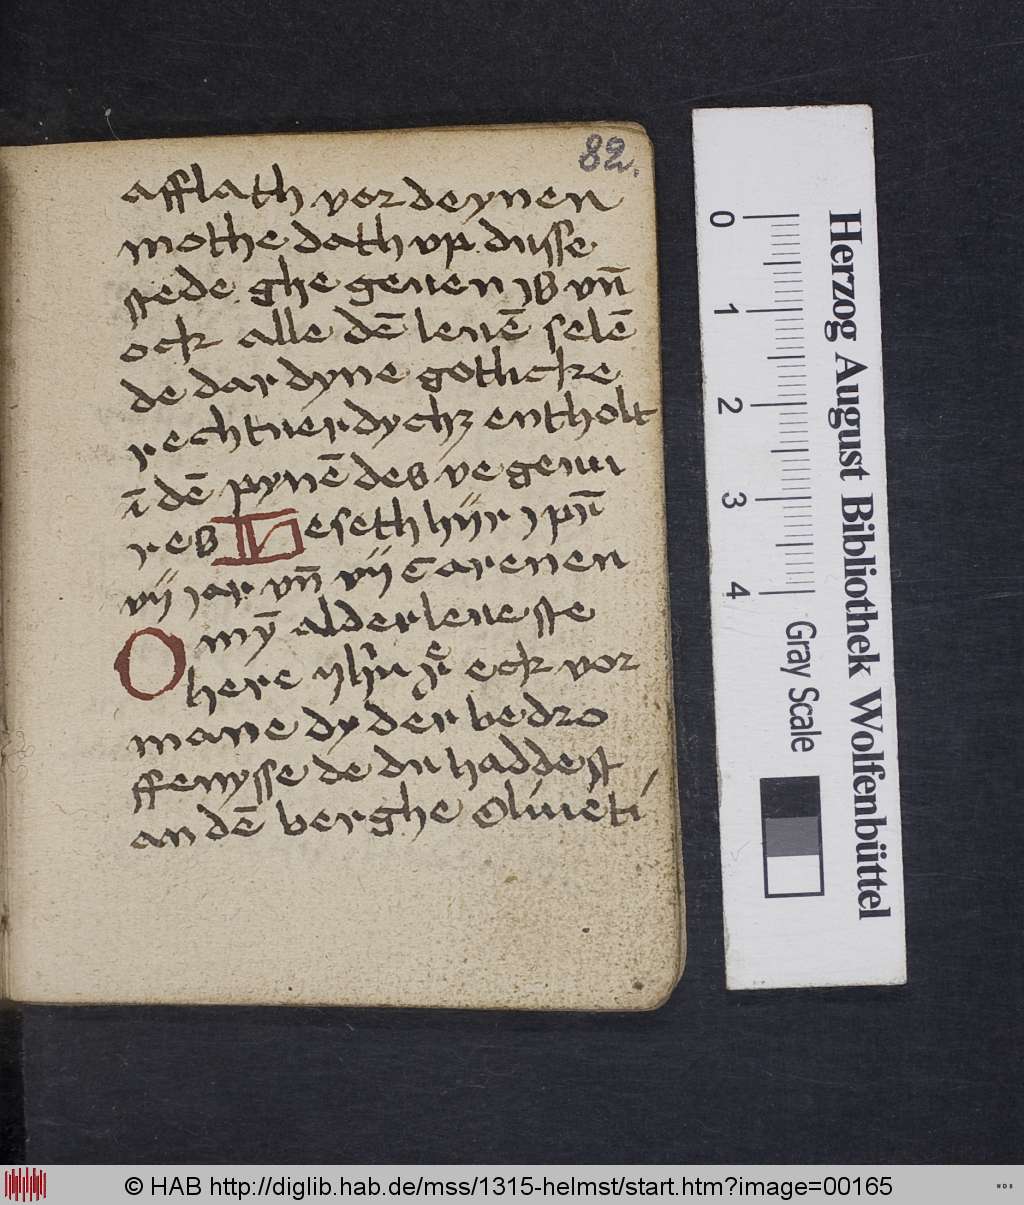 82.
afflath vor deynen
mothe dath vp dusse
stede ghe geuen is vn̄
ock alle dē leuē selē
de dar dyne gotlicke
rechtuerdychʒ entholt
ī dē pynē des ve geuu
res Leseth hÿr ȷ pr̄
vij ȷar vn̄ vij carenen
O mȳ alderleueste
here ȷhū eck vor
mane dy der bedro
ffenysse de du haddest
an dē berghe Oliueti
0
1
2
3
4
Gray Scale
Herzog August Bibliothek Wolfenbüttel
© HAB http://diglib.hab.de/mss/1315-helmst/start.htm?image=00165